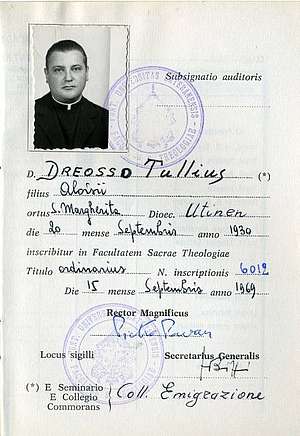 Subsignatio auditoris
D. DREOSSO Tullius (*)
filius Aloisii
ortus S. Margherita Dioec. Utinen
die 20 mense Septembris anno 1930
inscribitur in Facultatem Sacrae Theologiae
Titulo ordinarius N. inscriptionis 6012
Die 15 mense Septembris anno 1969
Rector Magnificus
Pietro Pavan
Locus sigilli Secretarius Generalis
(*) E Seminario
E Collegio
Commorans
Coll. Emigrazione